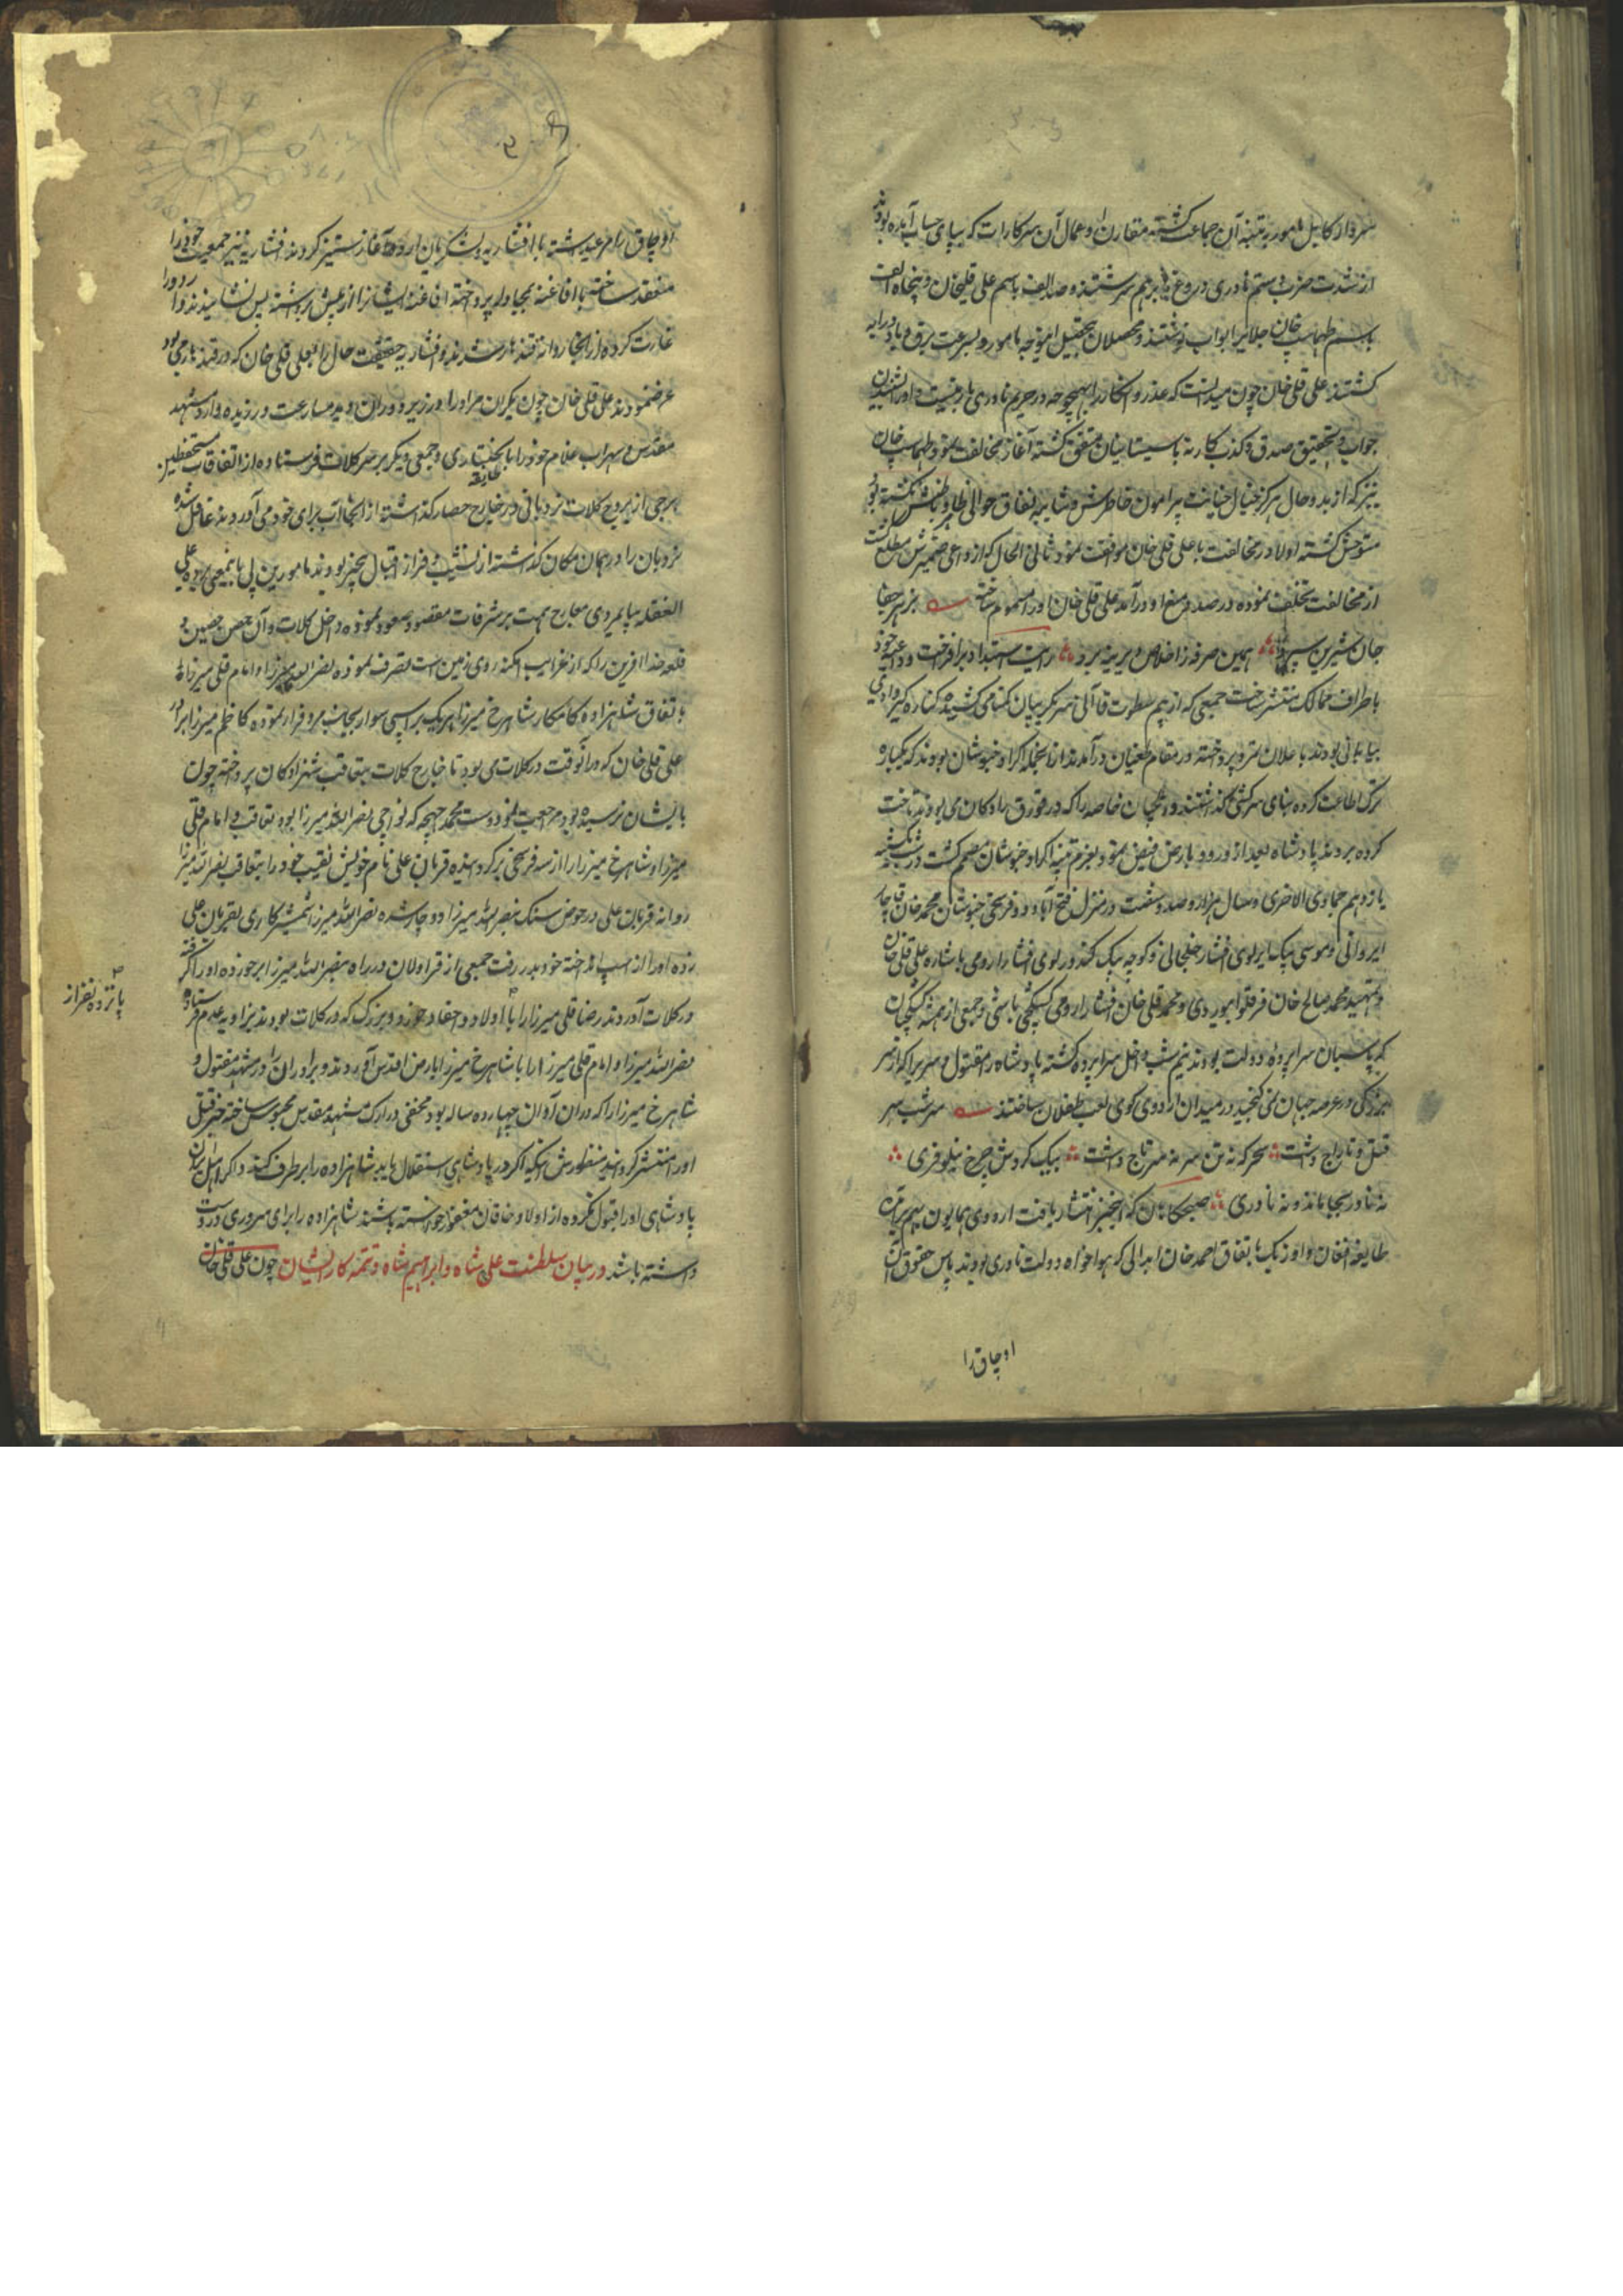 سردار کابل مامور به تنبیه آن جماعت گشته مقارن آن عمال آن سرکارات که بپای حساب آمده بودند
از شدت ضرب و ستم نادری دروغی چند برهم سرشتند و صد الف باسم علی قلیخان و پنجاه الف
باسم طهماسب خان جلایر ابواب نوشتند و محصلان بتحصیل این وجه مامور و بسرعت برق و باد روانه
گشتند علی قلی خان چون میدانست که عذر و انکار را بهیچوجه در حریم نادری بار نیست و او را شنیدن
جواب و تحقیق صدق و کذب کار نه با سیستانیان متفق گشته آغاز مخالفت نمود طهماسب خان
نیز که از بدو حال هرگز خیال خیانت پیرامون خاطرش و شایبه نفاق حوالی ظاهر و باطنش نگشته بود
متوحش گشته اولا در مخالفت با علی قلی خان موافقت نمود ثانی الحال که از دواعی ضمیرش مطلع گشت
از مخالفت تخلف نموده در صدد منع او درآمد علی قلی خان او را مسموم ساخته بزهر جفا
جان شیرین سپرد همین صرفه ز اخلاص دیرینه برد رایت استبداد برافراخت و داعیه خود
باطراف ممالک منتشر ساخت جمعی که از بیم سطوت قاآنی سر بگریبان گمنامی کشیده کناره گیر وادی
بیابانی بودند باعلان تمرد پرداخته در مقام طغیان درآمدند از آنجمله اکراد خبوشان بودند که یکباره
ترک اطاعت کرده بنای سرکشی گذاشتند و ایلخیان خاصه را که در قورق رادکان می بودند تاخت
کرده بردند پادشاه بعد از ورود بارض فیض نمود بعزم تنبیه اکراد خبوشان مصمم گشت در شب یکشنبه
یازدهم جمادی الاخری سال هزار و صد و شصت در منزل فتح آباد دو فرسخی خبوشان محمد خان قاجار
ایروانی و موسی بیک ایرلوی افشار خلخالی و کوچه بیک کندورلوی افشار ارومی باشاره علی قلی خان
و تمهید محمد صالح خان قرقلو ابیوردی و محمد قلی خان افشار ارومی کشیکچی باشی و جمعی از همیشه کشیکان
که پاسبان سراپرده دولت بودند نیم شب داخل سراپرده گشته پادشاه را مقتول و سریرا که از سر
بزرگی در عرصه جهان نمی گنجید در میدان اردوی گوی لعب طفلان ساختند سر شب سر
قتل و تاراج داشت سحرگه نه تن سر نه سر تاج داشت بیک گردش چرخ نیلوفری
نه نادر بجا ماند و نه نادری صبحگاهان که این خبر انتشار یافت اردوی همایون بهم برآمده
طایفه افغان و اوزبک باتفاق احمد خان ابدالی که هواخواه دولت نادری بودند پاس حقوق آن
اوجاق را
اوجاق را مرعی داشته با افشاریه و لشکریان اردو آغاز ستیز کردند افشاریه نیز جمعیت خود را
منعقد ساخته با افاغنه بمجادله پرداخته افاغنه ایشانرا از پیش برداشته پس نشانیدند و اردو را
غارت کرده از آنجا روانه قندهار شدند و افشاریه حقیقت حال را بعلی قلی خان که در قندهار می بود
عرض نمودند علی قلی خان چون یکران مراد را در زیر دوران دید مسارعت ورزیده وارد مشهد
مقدس و سهراب غلام خود را با بختیاری و جمعی دیگر بر سر کلات فرستاده از اتفاقات مستحفظین
برجی از بروج کلات نردبانی در خارج حصار گذاشته از آنجا آب برای خود می آوردند غافل شده
نردبان را در همان مکان گذاشته از نشیب و فراز اقبال بیخبر بودند مامورین پی باینمعنی برده علی
الغفله بپایمردی معارج همت بر شرفات مقصود صعود نموده داخل کلات و آن حصن حصین و
قلعه خدا آفرین را که از غرایب امکنه روی زمین است تصرف نموده نصرالله میرزا و امام قلی میرزا
باتفاق شاهزاده کامکار شاهرخ میرزا هریک بر اسبی سوار بجانب مرو فرار نموده کاظم میرزا برادر
علی قلی خان که در آنوقت در کلات می بود تا خارج کلات بتعاقب شهزادکان پرداخته چون
بایشان نرسیده بود مراجعت نمود دوست محمد چهچه که قوشچی نصرالله میرزا بود تعاقب و امام قلی
میرزا و شاهرخ میرزا را از سه فرسخی برگردانیده قربان علی نام خویش نقیب خود را بتعاقب نصرالله میرزا
روانه قربان علی در حوض سنگ بنصرالله میرزا دوچار شده نصرالله میرزا شمشیر کاری بقربان علی
زده او را از اسب انداخته خود بدر رفت جمعی از قراولان در راه بنصرالله میرزا برخورده او را گرفته
در کلات آوردند رضا قلی میرزا را با اولاد و احفاد خورد و بزرگ که در کلات بودند بزاویه عدم فرستاده
پانزده نفر از
نصرالله میرزا و امام قلی میرزا را با شاهرخ میرزا بارض اقدس آوردند و برادران را در مشهد مقتول و
شاهرخ میرزا را که در آن آوان چهارده ساله بود مخفی در ارک مشهد مقدس محبوس ساخته خبر قتل
او را منتشر گردانید منظورش اینکه اگر در پادشاهی استقلال یابد شاهزاده را برطرف کند و اگر اهل ایران
پادشاهی او را قبول نکرده از اولاد خاقان مغفور خواسته باشند شاهزاده را برای سروری در دست
داشته باشد در بیان سلطنت علی شاه و ابراهیم شاه و تتمه کار ایشان چون علی قلی خان